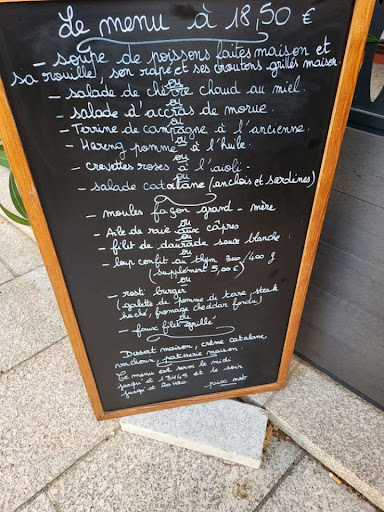 Le menu à 18,50 €
- soupe de poissons faites maison et
sa rouille, son rapé et ses croutons grillés maison.
ou
- salade de chèvre chaud au miel.
ou
- salade d'accras de morue.
ou
- Terrine de campagne à l'ancienne.
ou
- Hareng pomme à l'huile.
ou
- crevettes roses à l'aïoli.
ou
- salade catalane (anchois et sardines)
- moules façon grand-mère
ou
- Aile de raie aux câpres
ou
- filet de daurade sauce blanche
ou
- loup confit au thym 300/400 g
(supplément 5,00 €)
ou
- rosti burger
(galette de pomme de terre, steak
haché, fromage cheddar fondu)
ou
- faux filet grillé
Dessert maison, crème catalane
patisserie maison.
Ce menu est servi le midi
jusqu'à et le soir
jusqu'à